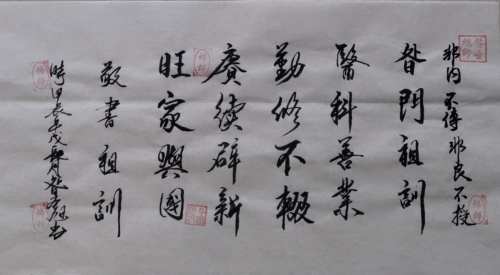 非内不傳非良不授
昝門祖訓
醫科善業
勤修不輟
賡續辟新
旺家與國
敬書祖訓
時甲辰年戊